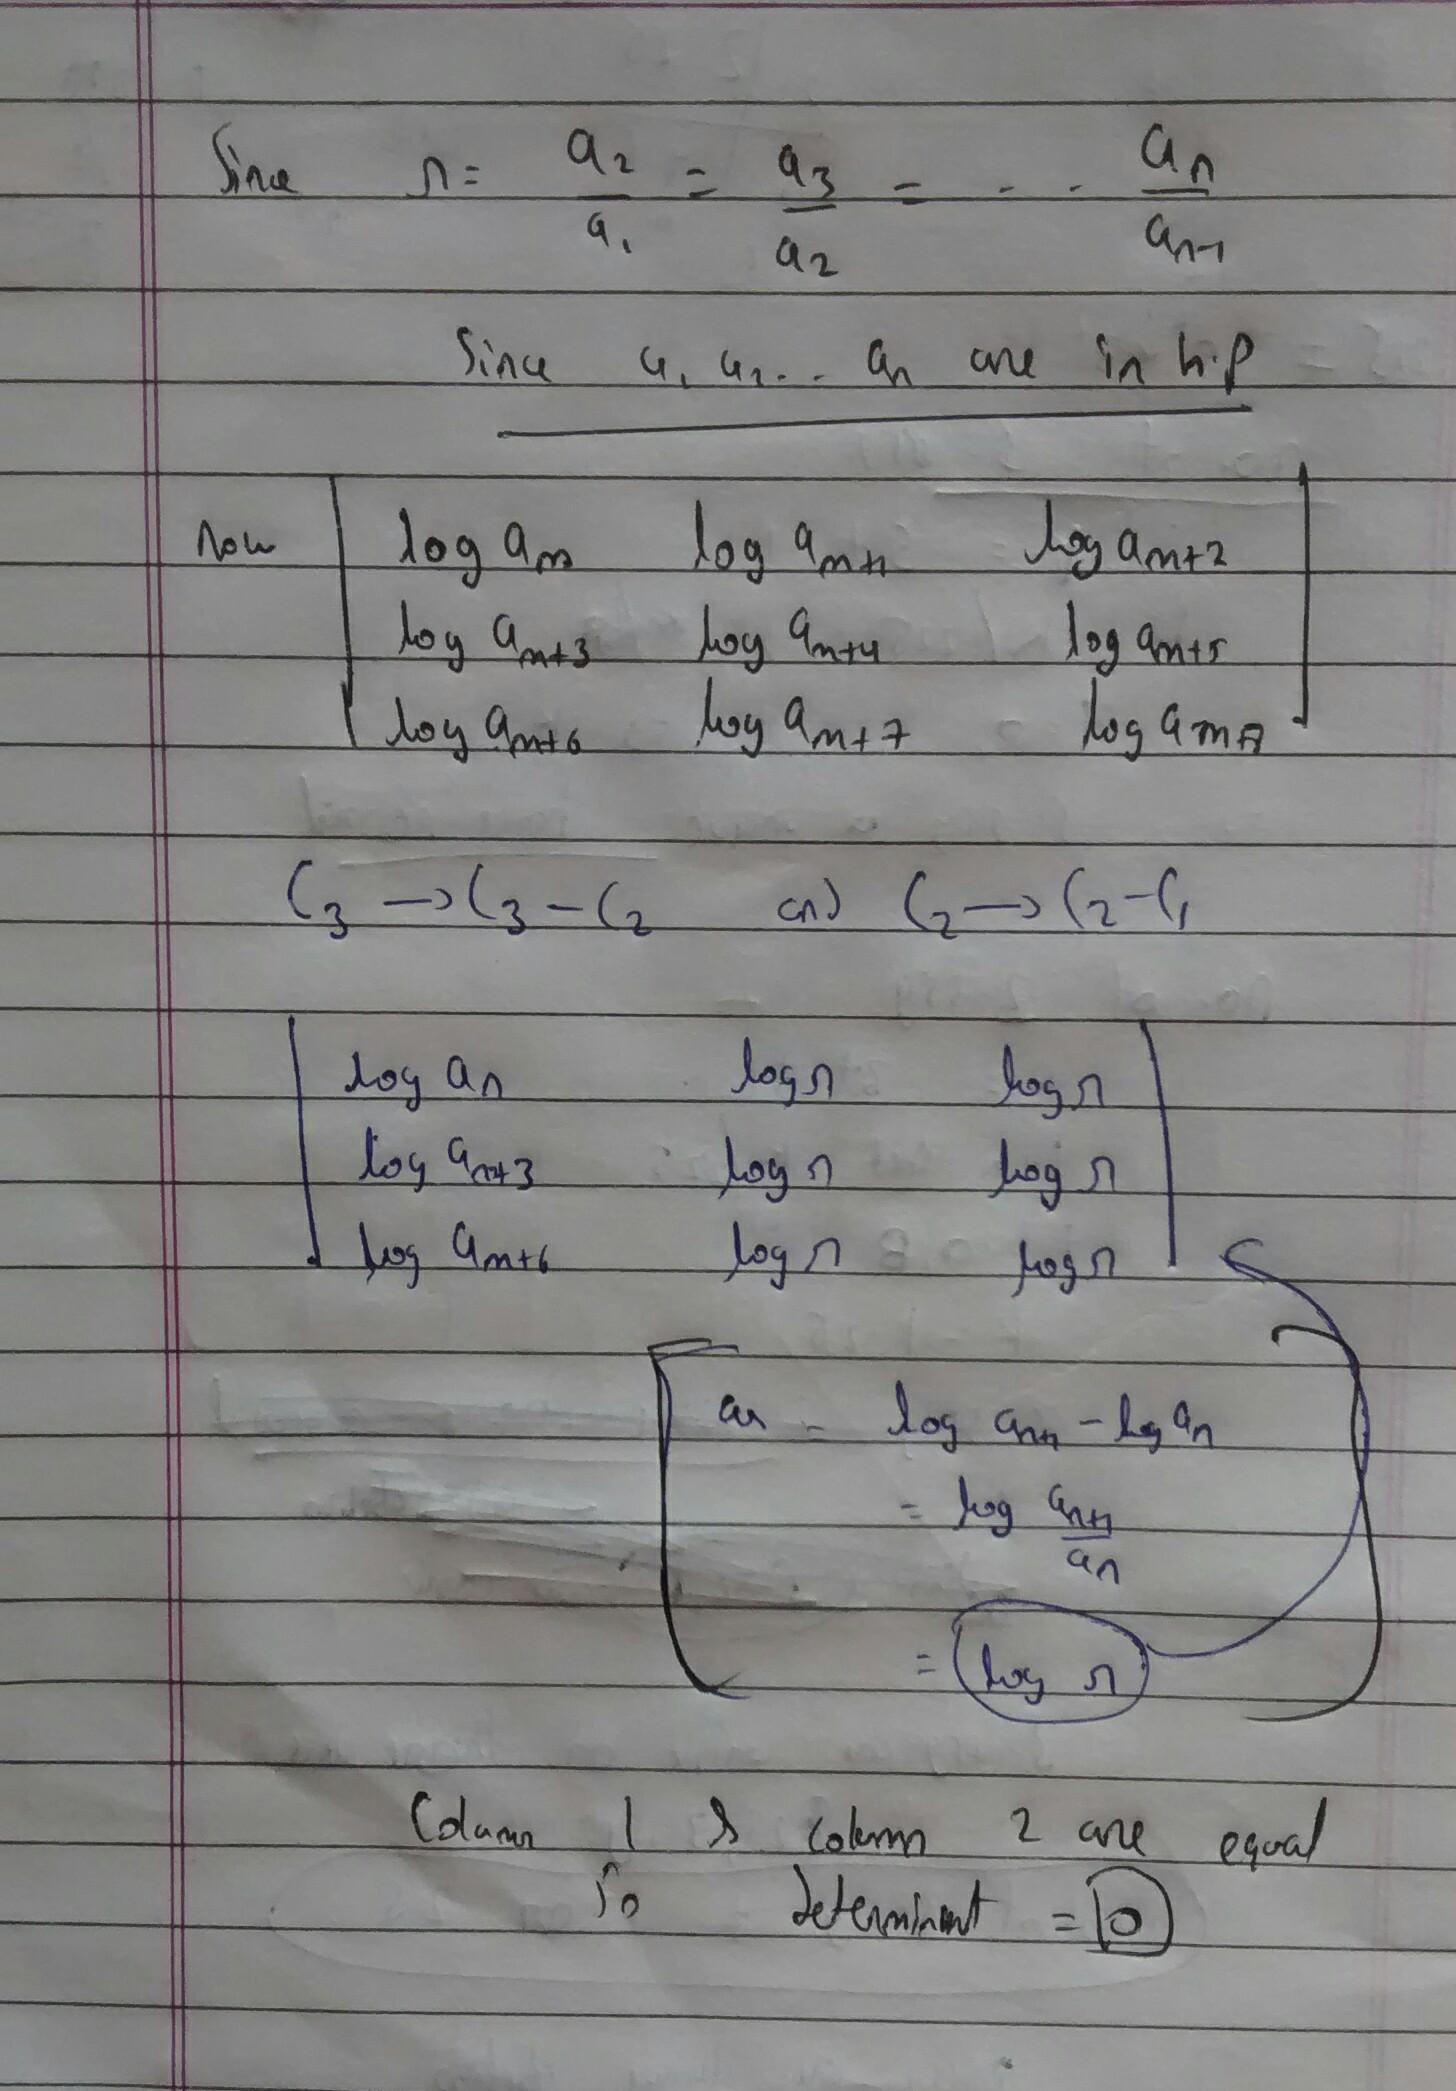 Since r = a₂/a₁ = a₃/a₂ = - - aₙ/aₙ₋₁
Since a₁ a₂... aₙ are in h.p
Now | log aₙ log aₙ₊₁ log aₙ₊₂ |
| log aₙ₊₃ log aₙ₊₄ log aₙ₊₅ |
| log aₙ₊₆ log aₙ₊₇ log aₙ₊₈ |
C₃ → C₃ - C₂ and C₂ → C₂ - C₁
| log aₙ log r log r |
| log aₙ₊₃ log r log r |
| log aₙ₊₆ log r log r |
as = log aₙ₊₁ - log aₙ
= log aₙ₊₁/aₙ
= log r
Column 1 & column 2 are equal
So determinant = 0